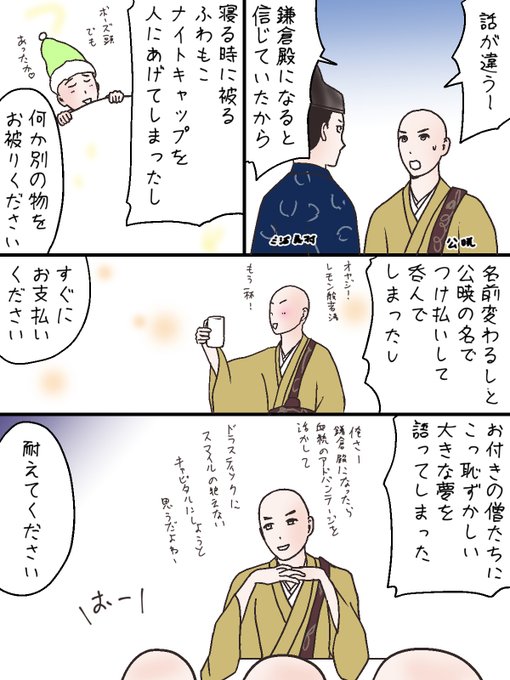 話が違うー
鎌倉殿になると
信じていたから
三浦義村
公暁
寝る時に被る
ふわもこ
ナイトキャップを
人にあげてしまったし
ボーズ頭
でも
あったか♡
何か別の物を
お被りください
名前変わるしと
公暁の名で
つけ払いして
呑んで
しまったし
オヤジ!
レモン酸素濃
もう一杯!
すぐに
お支払い
ください
お付きの僧たちに
こっ恥ずかしい
大きな夢を
語ってしまった
俺さー
鎌倉殿になったら
血統のアドバンテージを
活かして
ドラスティックに
スマイルの絶えない
キャピタルにしようと
思うだよねー
おー
耐えてください